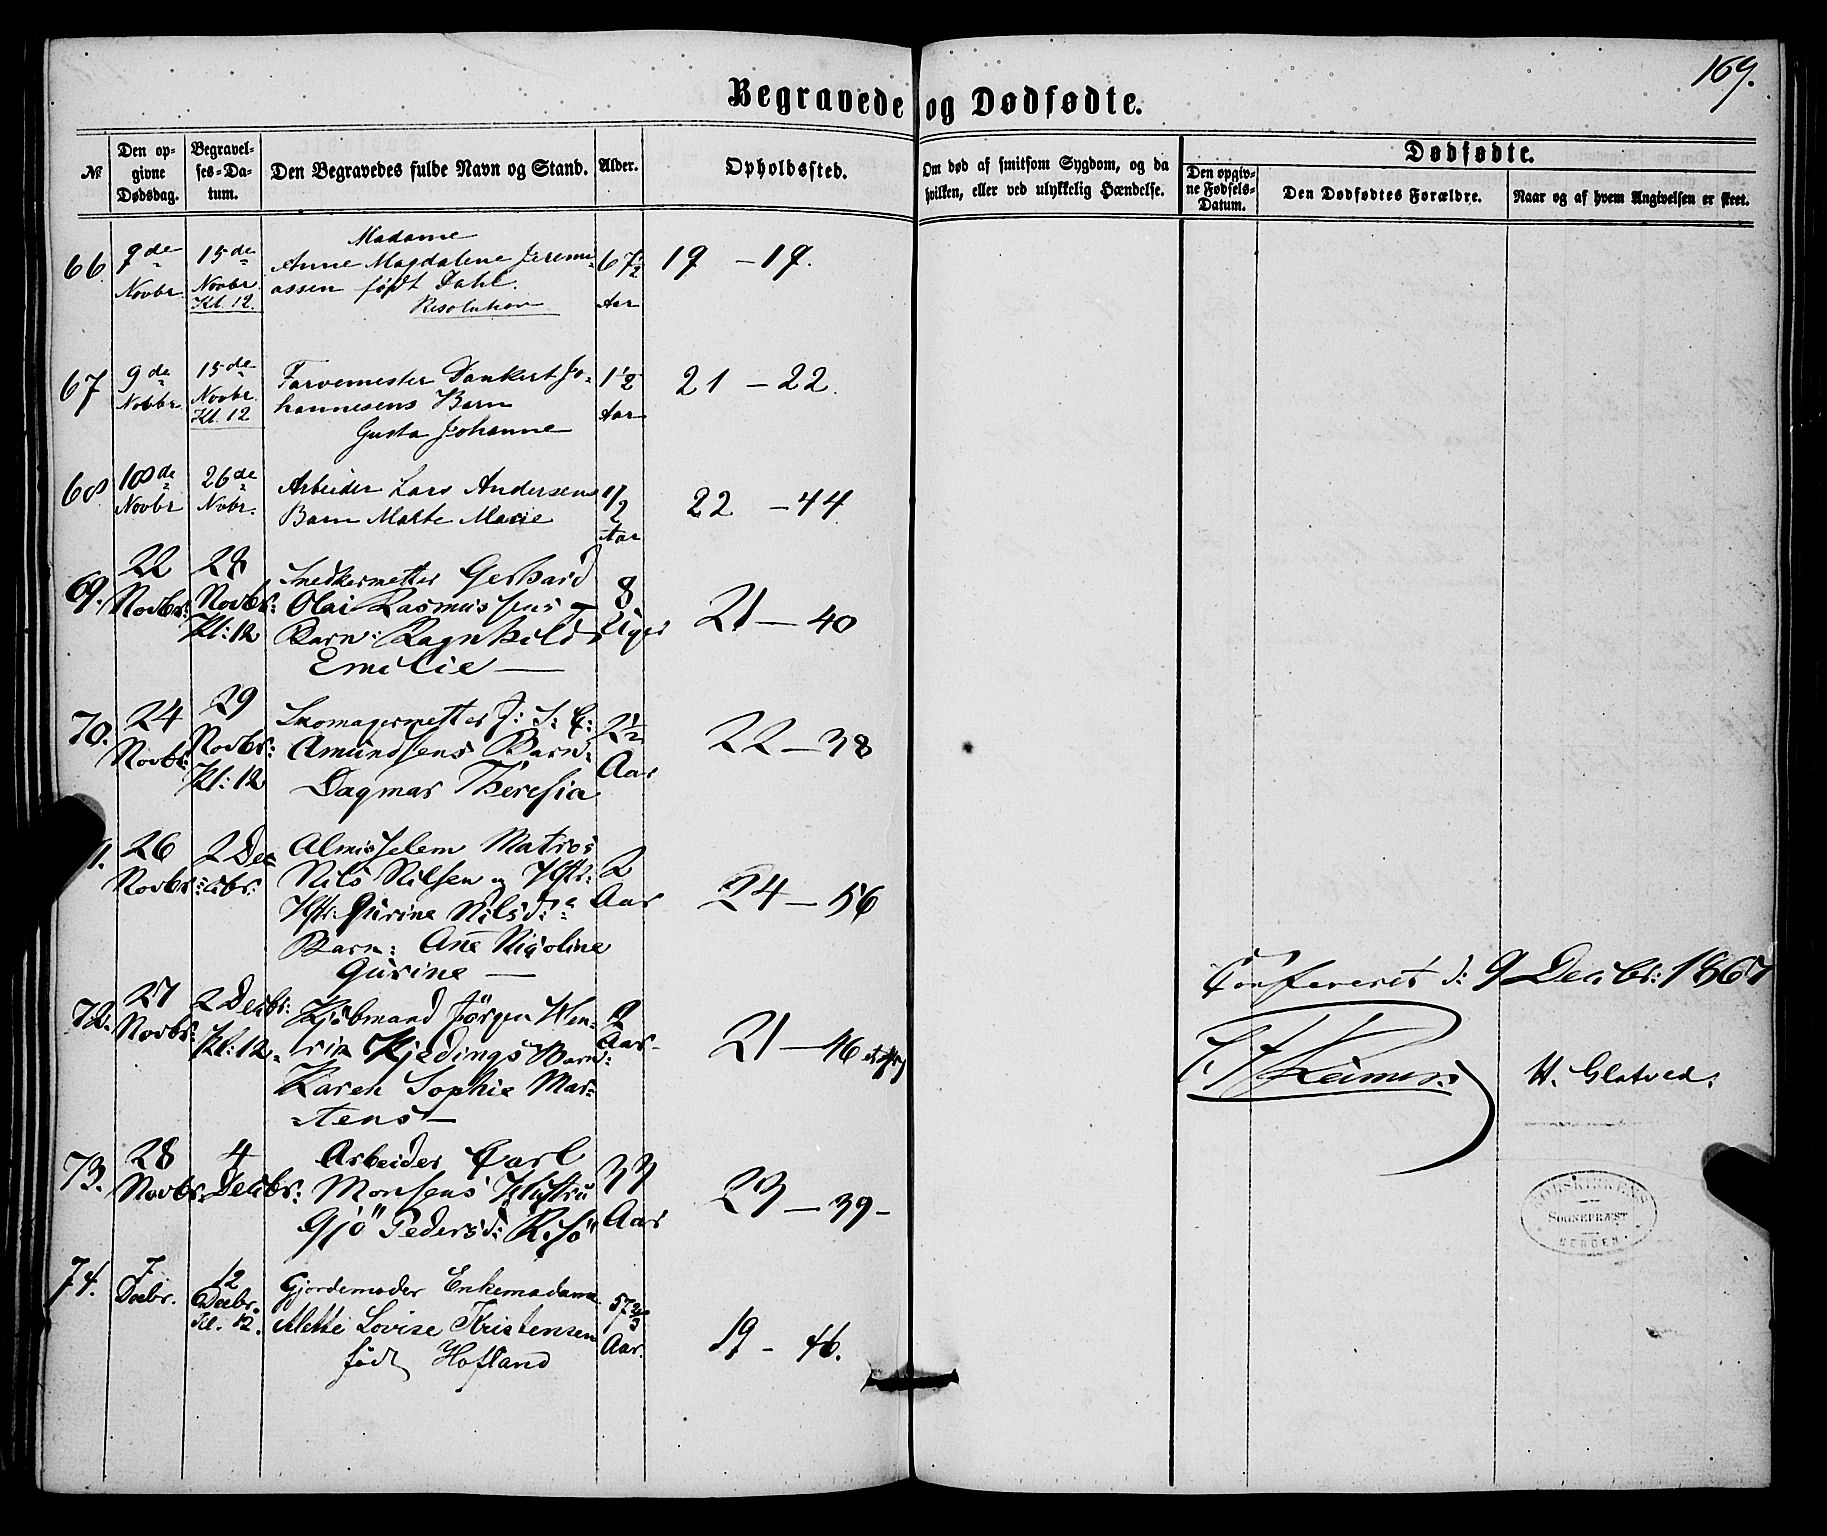 169.
Begravede og Dødfødte.
№
Den op-
givne
Dødsdag.
Begravel-
ses-Da-
tum.
Den Begravedes fulde Navn og Stand.
Alder.
Opholdssted.
Om død af smitsom Sygdom, og da
hvilken, eller ved ulykkelig Hændelse.
Dødfødte.
Den opgiv-
ne Fødsels-
Datum.
Den Dødfødtes Forældre.
Naar og af hvem Angivelsen er skeet.
66. 9de Novbr 15de Novbr. Kl. 12.
Madame
Anne Magdalene Jeremi-
assen født Dahl.
Resolution
67 1/2 Aar
19 - 19.
67 9de Novbr 15de Novbr. Kl. 12
Farvemester Dankert Jo-
hannesens Barn
Gusta Johanne
1 1/2 Aar
21 - 22.
68. 18de Novbr 26de Novbr.
Arbeider Lars Andersens
Barn Malte Marie
1/2 Aar
22 - 44.
69. 22 Novbr: 28 Novbr: Kl: 12
Snedkermester Gerhard
Olai Rasmussens
Barn: Ragnhild
Emilie —
8 Uger
21 — 40
70. 24 Novbr: 29 Novbr: Kl: 12
Skomagermester J: S: C:
Amundsens Barn:
Dagmar Theresia
2 1/2 Aar
22 — 38
1. 26 Novbr: 2 Decbr:
Almisselem Matros
Nils Nilsen og Hstr:
Hstr: Gurine Nilsd:
Barn: Ane Nicoline
Gurine —
2 Aar
24 — 56
72. 27 Novbr: 2 Decbr: Kl: 12.
Kjøbmand Jörgen Hen-
rik Kjedings Barn:
Karen Sophie Mar-
tens —
Aar
21 — 46
73. 28 Novbr: 4 Decbr:
Arbeider Carl
Monsens Hustru
Gjö Pedersd: Risö
33 Aar
23 — 39 -
74. 7 Decbr. 12 Decbr. Kl. 12.
Gjordemoder Enkemadame
Mette Lovise Kristensen
født Hofland
57 2/3 Aar.
19 - 46.
Confereret d: 9 Decbr: 1867
Reimers
H. Glatved.
KORSKIRKENS
SOGNEPRÆST
BERGEN.